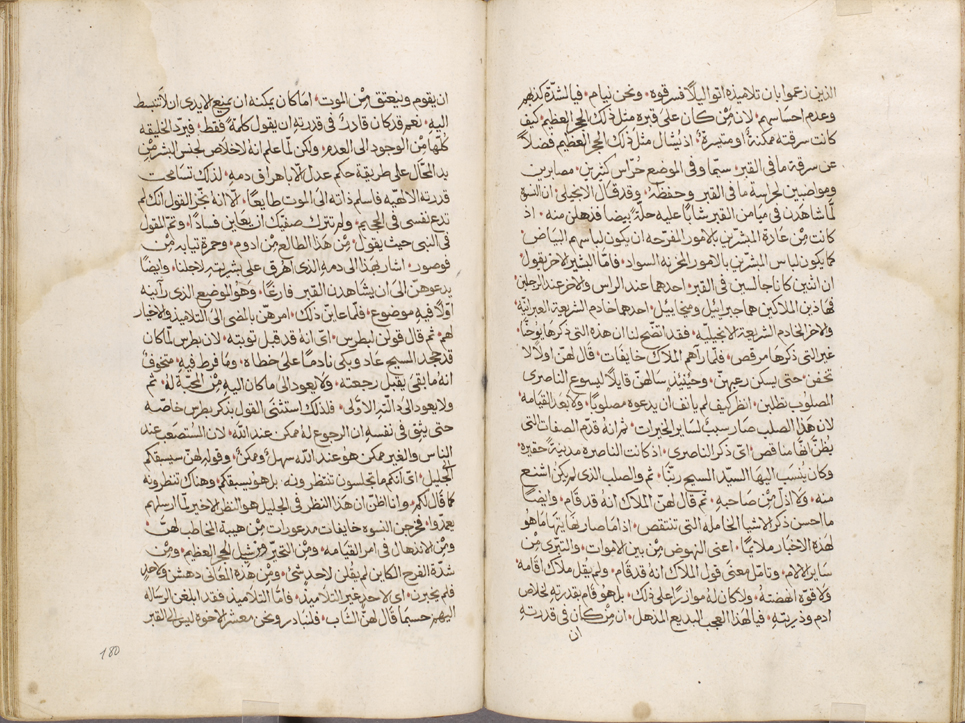 الذين زعموا بان تلاميذه اتوا ليلًا فسرقوه ونحن نيام فيا لشدّة كذبهم
وعدم احساسهم لان من كان على قبره مثل ذلك الحجر العظيم كيف
كانت سرقته ممكنةً او متيسرةً اذ يُشال مثل ذلك الحجر العظيم فضلًا
عن سرقة ما في القبر سيّما وفي الموضع حُرّاس كثيرين مصابرين
ومواضبين لحراسة ما في القبر وحفظه وقد قال الانجيلى ان النسوة
لمّا شاهدن في ميامن القبر شابًّا عليه حلّة بيضا فذهلن منه اذ
كانت من عادة المبشرين بالامور المفرحه ان يكون لباسهم البياض
كما يكون لباس المبشرين بالامور المحزنه السواد فامّا البشير الاخر يقول
ان اثنين كانا جالسين في القبر احدهما عند الراس والاخر عند الرجلين
فهاذين الملاكين هما جبراييل وميخاييل احدهما خادم الشريعة العبرانيّة
والاخر الخادم الشريعة الانجيليّه فقد اتّضح لنا ان هذه التي ذكرها يوحنا
غير التي ذكرها مرقص فلمّا رآهم الملاك خايفات قال لهنّ اولًا لا
تخفن حتى يسكن رعبهنّ وحينيذٍ سالهنّ قايلًا ليسوع الناصرى
المصلوب تطلبن انظر كيف لم يانف ان يدعوه مصلوبًا ولا بعد القيامه
لان هذا الصلب صار سببٌ لساير الخيرات ثم انه قدّم الصفات التي
يُظنّ انّها مناقص اى ذكر الناصرى اذ كانت الناصره مدينة حقيره
وكان يُنسَب اليها السيّد المسيح ربنا ثم والصلب الذى لم يكن اشنع
منه ولا اذلّ من صاحبه ثم قال لهنّ الملاك انه قد قام وايضًا
ما احسن ذكر الاشيا الخامله التي تنتقص اذ اضاف اليها ما هو
لهذه الاخبار ملايمًا اعنى النهوض من بين الاموات والتبرّى من
ساير الالام وتامّل معنى قول الملاك انه قد قام ولم يقل ملاك اقامه
ولا قوّه انهضته ولا كان له موازرًا على ذلك بل هو قام بقدرته لخلاص
ادم وذريته فيا لهذا العجب البديع المذهل ان من كان في قدرته
ان
ان يقوم وينعتق من الموت اما كان يمكنه ان يمنع الايدى ان لا تنبسط
اليه نعم قد كان قادرٌ في قدرته ان يقول كلمةً فقط فيردّ الخليقه
كلّها من الوجود الى العدم ولكن لمّا علم انه لا خلاص لجنس البشر من
يد المحّال على طريقة حكم عدل الّا باهراق دمه لذلك تسامحت
قدرته الالاهيّه فاسلم ذاته الى الموت طايعًا لانه نجّز القول انك لم
تدع نفسى في الجحيم ولم تترك صفيّك ان يعاين فسادًا وتمّ القول
في النبى حيث يقول من هذا الطالع من ادوم وحمرة ثيابه من
فوصور اشار بهذا الى دمه الذى اهرق على بشريته لاجلنا وايضًا
يدعوهنّ الى ان يشاهدن القبر فارغًا وهو الموضع الذى راينه
اولًا فيه موضوع فلمّا عاين ذلك امرهن بالمضى الى التلاميذ والاخبار
لهم ثم قال قولن لبطرس اى انه قد قبل توبته لان بطرس لمّا كان
قد جحد المسيح عاد وبكى نادمًا على خطاه وما فرط فيه متخوفٌ
انه ما بقى يقبل رجعته ولا يعود الى ما كان اليه من المحبّة له ثم
ولا يعود الى المرتبه الاولى فلذلك استثنى القول بذكر بطرس خاصّه
حتى يثق في نفسه ان الرجوع له ممكن عند الله لان المستصعب عند
الناس والغير ممكن هو عند الله سهلٌ وممكنٌ وقوله لهنّ سيسبقكم
الجليل اى انكم ما تجلسون تنتظرونه بل هو يسبقكم وهناك تنظرونه
كما قال لكم وانا اظنّ ان هذا النظر في الجليل هو النظر الاخير لمّا ارسلهم
يعمذوا فخرجن النسوه خايفات مدعورات من هيبة المخاطب لهنّ
ومن الاندهال في امر القيامه ومن التحيّر من شيل الحجر العظيم ومن
شدّة الفرح الكاين لم يقلن لاحدٍ شئٍ ومن هذه المعانى دهشن ولاحدٍ
فلم يخبرن اى لاحدٍ غير التلاميذ فامّا التلاميذ فقد ابلغن الرساله
اليهم حسبما قال لهنّ الشاب فلنبادر ونحن معشر الاخوه ليس الى القبر
180